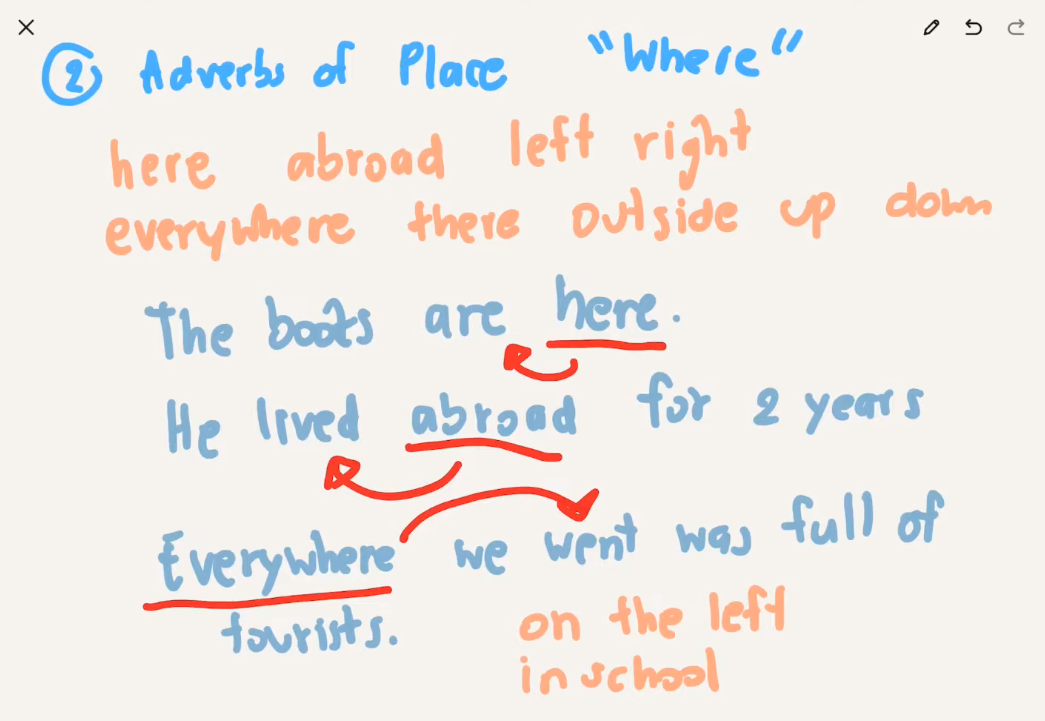 ② Adverbs of Place "Where"
here abroad left right
everywhere there outside up down
The boots are here.
He lived abroad for 2 years
Everywhere we went was full of
tourists.
on the left
in school